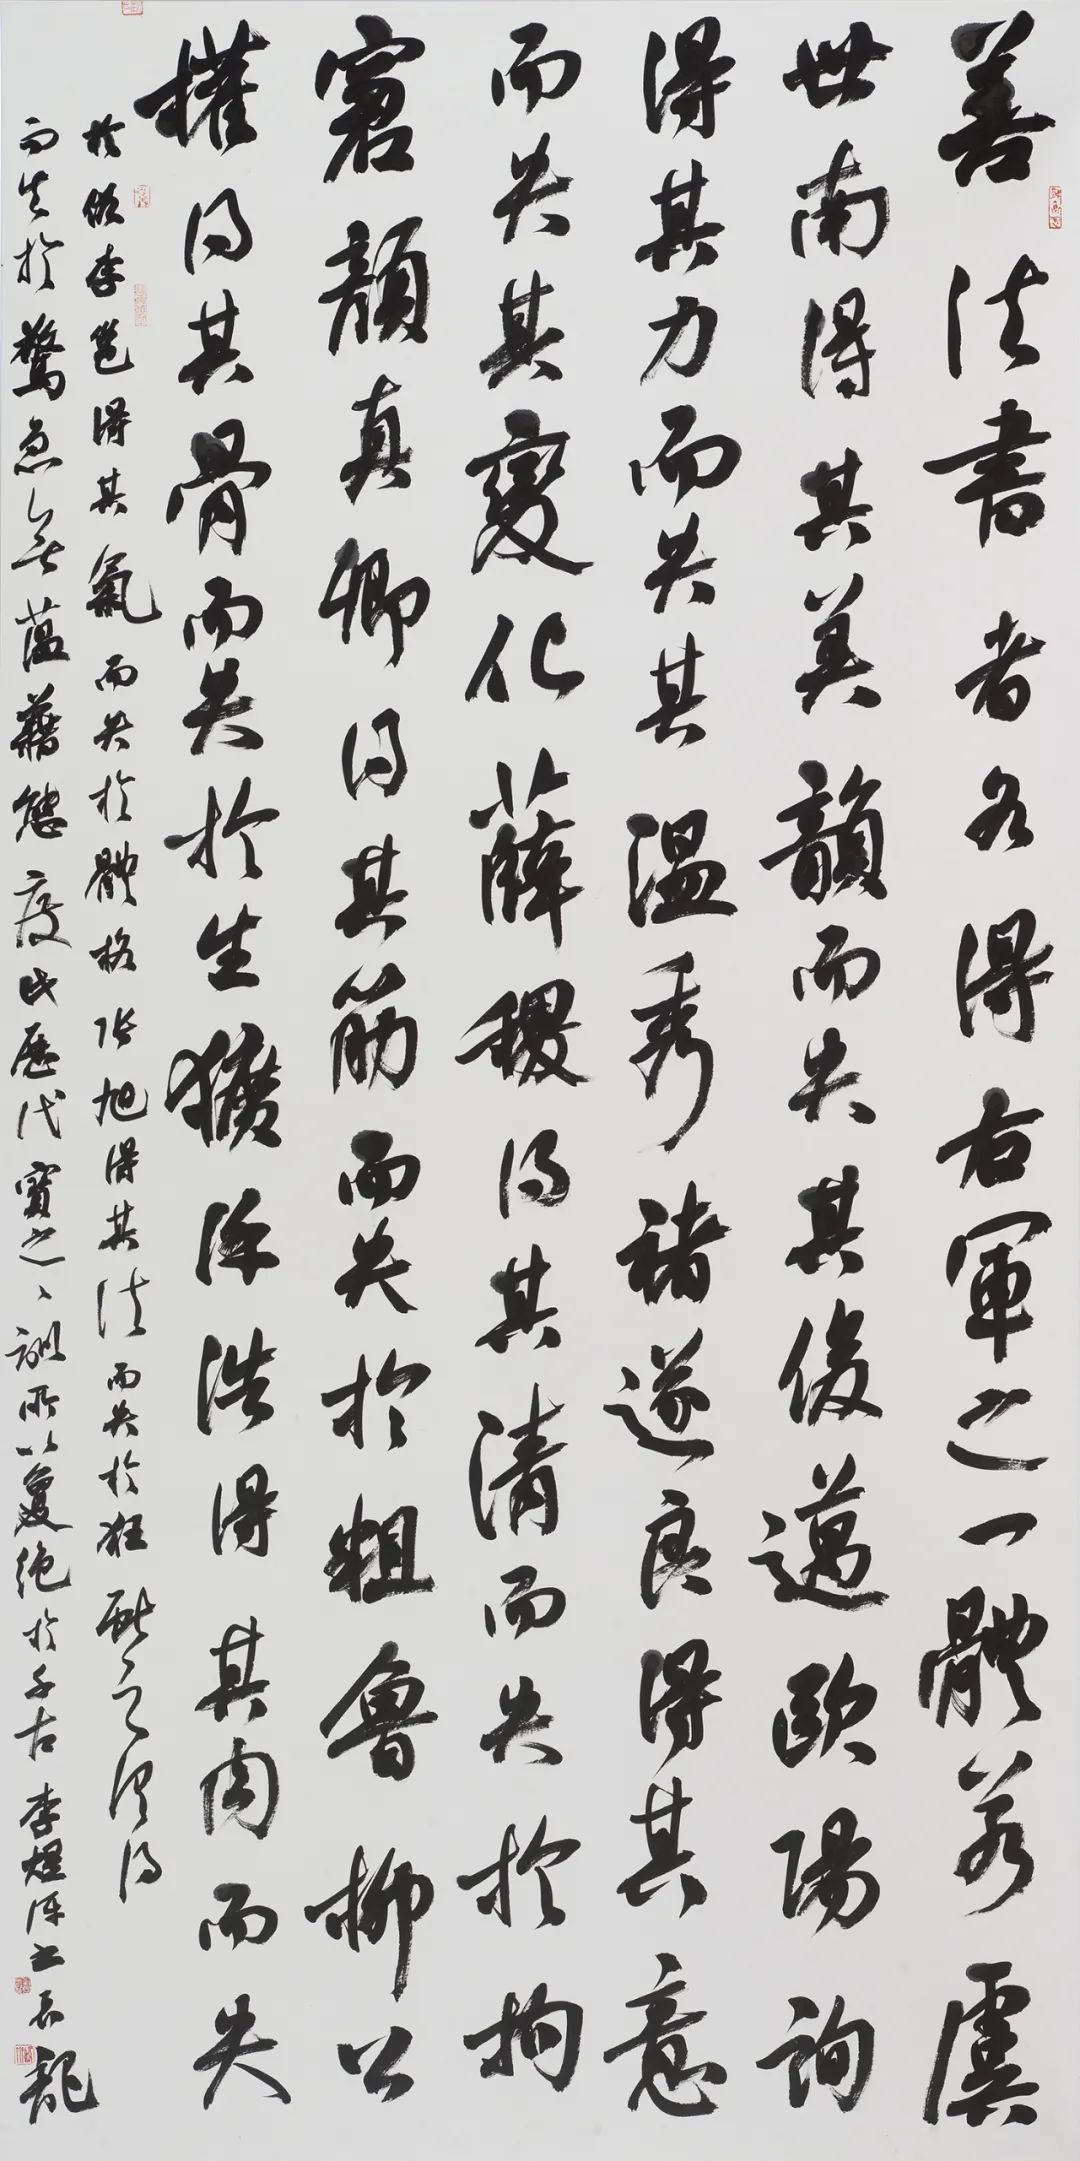 善法書者各得右軍之一體若虞
世南得其美韻而失其俊邁歐陽詢
得其力而失其溫秀褚遂良得其意
而失其變化薛稷得其清而失於拘
窘顏真卿得其筋而失於粗魯柳公
權得其骨而失於生獷徐浩得其肉而失
於俗李邕得其氣而失於體格張旭得其法而失於狂獻之俱得
而失於驚急無蘊藉態度此歷代寶之〻訓所以夐絕於千古李煜評書 龍